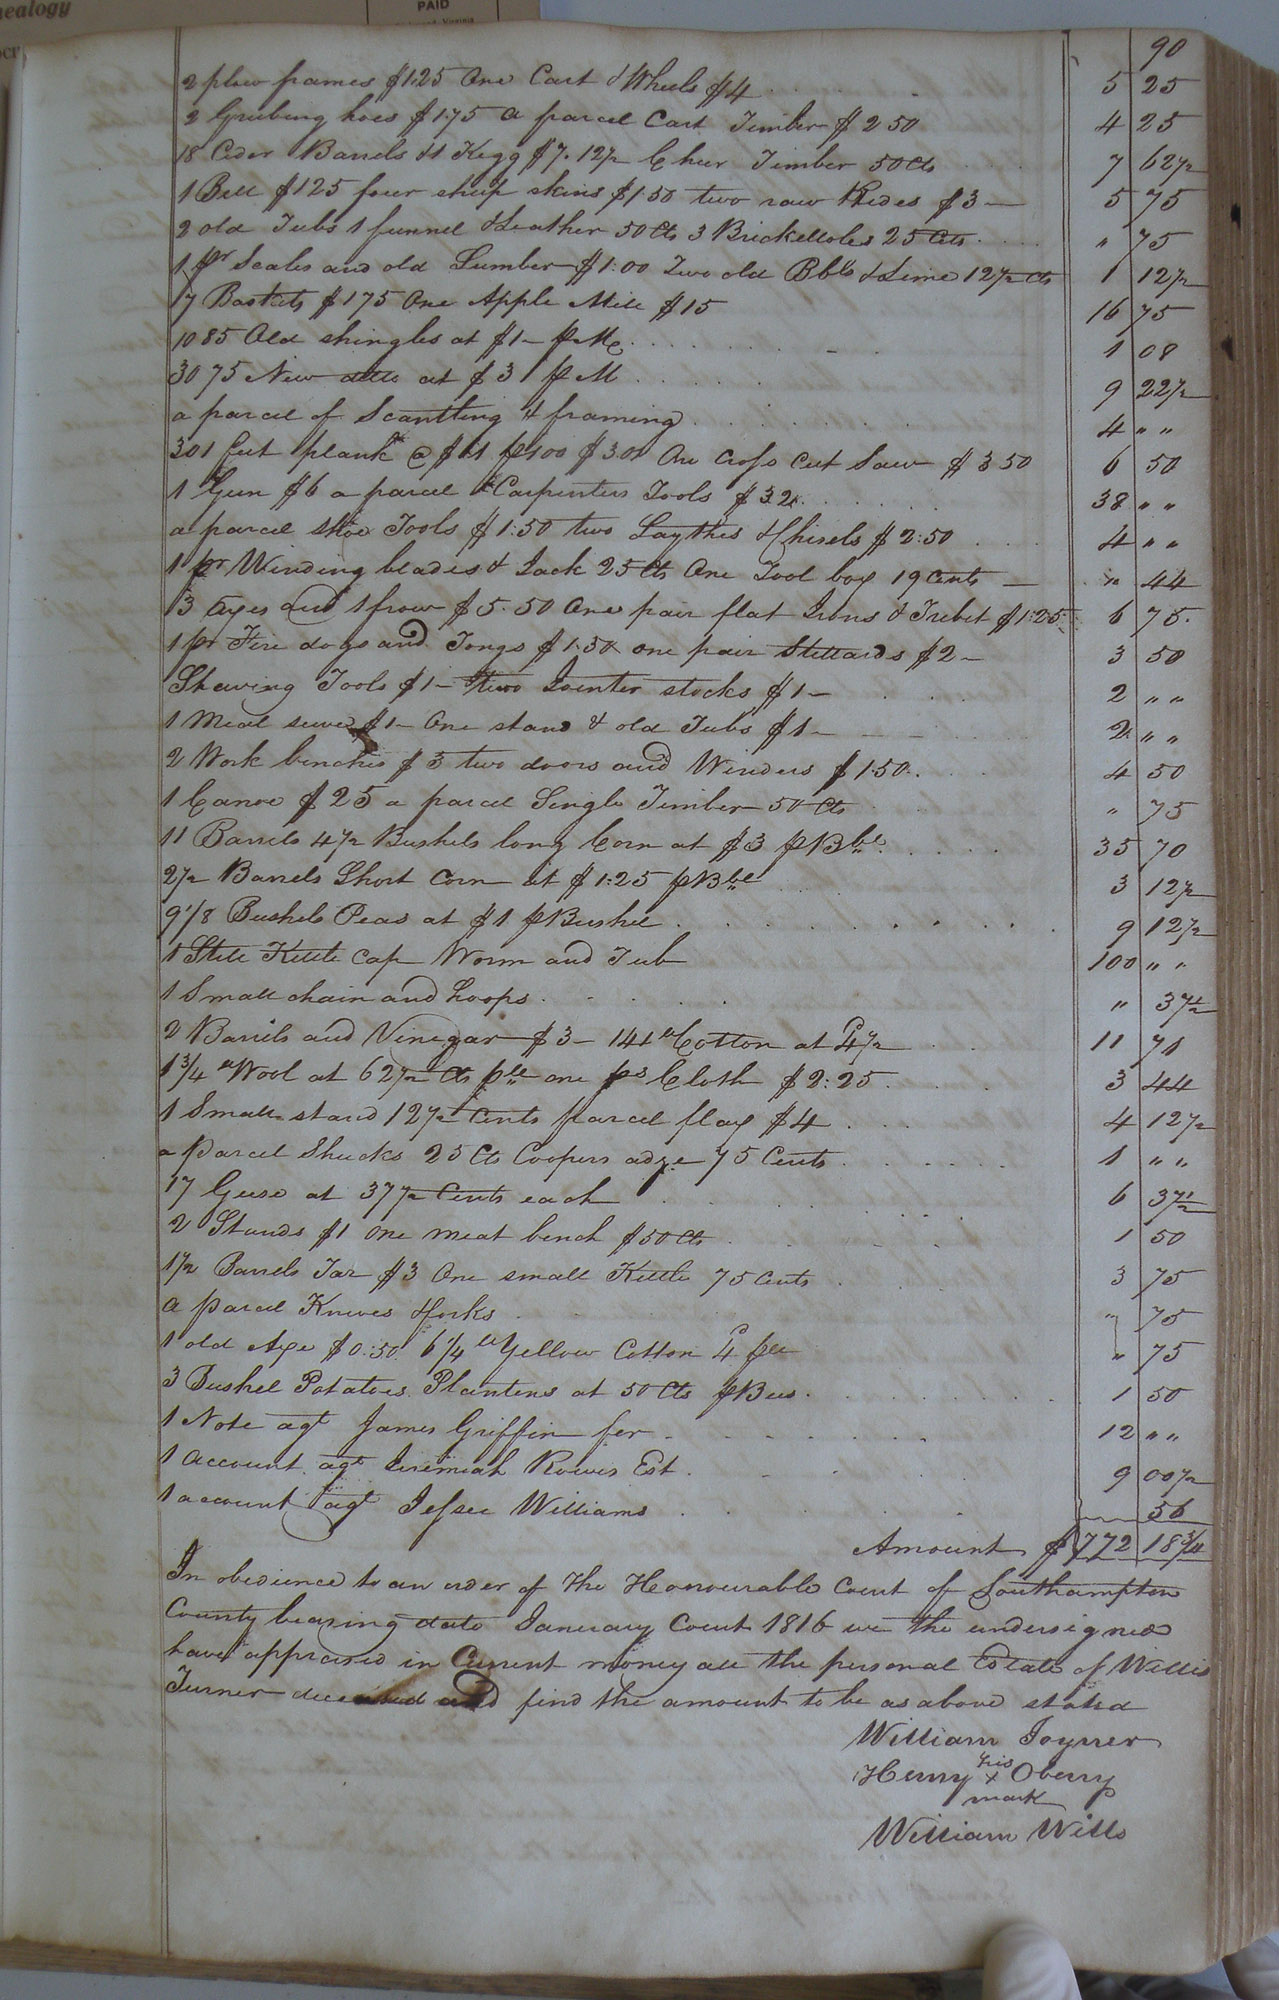 nealogy
PAID
90
2 plow frames $1.25 One Cart & Wheels $4 5 25
2 Grubing hoes $1.75 a parcel Cart Timber $2 50 4 25
18 Cider Barrels & 1 Kegg $7.12½ Chair Timber 50 Cts 7 62½
1 Bell $1 25 four sheep skins $1.50 two raw Hides $3 — 5 75
2 old Tubs 1 funnel & Leather 50 Cts 3 Brickmoles 25 Cts " 75
1 pr Scales and old Lumber $1.00 Two old Bbls & Lime 12½ cts 1 12½
7 Baskets $1 75 One Apple Mill $15 16 75
1085 Old shingles at $1 — p M 1 08
3075 New ditto at $3 p M 9 22½
a parcel of Scantling & framing 4 " "
301 feet plank @ $1 p 100 $3.01 One cross cut Saw $3 50 6 50
1 Gun $6 a parcel Carpenters Tools $32 38 " "
a parcel Shoe Tools $1.50 two Laythes & Chisels $2:50 4 " "
1 pr Winding blades & Jack 25 Cts One Tool box 19 Cents — " 44
3 axes and 1 frow $5.50 One pair flat Irons & Trebit $1:25 6 75.
1 pr Fire dogs and Tongs $1.50 one pair Stillards $2 — 3 50
Shaving Tools $1 — two Jointer stocks $1 — 2 " "
1 Meal seive $1 — One stand & old Tubs $1 — 2 " "
2 Work benches $3 two doors and Winders $1.50. 4 50
1 Canoe $25 a parcel Single Timber 50 Cts " 75
11 Barrels 4½ Bushels long Corn at $3 p Bbl 35 70
2½ Barrels Short Corn at $1:25 p Bbl 3 12½
9 1/8 Bushels Peas at $1 p Bushel 9 12½
1 Still Kettle Cap Worm and Tub 100 " "
1 Small chain and hoops " 37½
2 Barrils and Vinegar $3 — 141 lb Cotton at 4½ 11 71
1¾ lb Wool at 62½ Cts p lb one ps Cloth $2:25 3 44
1 Small stand 12½ Cents parcel flax $4 4 12½
a Parcel Shucks 25 Cts Coopers adze 75 Cents 1 " "
17 Geese at 37½ Cents each 6 37½
2 Stands $1 one meat bench $50 Cts 1 50
1½ Barrels Tar $3 One small Kettle 75 Cents 3 75
a parcel Knives & forks " 75
1 old Axe $0:50 6¼ lb Yellow Cotton 4 p lb " 75
3 Bushel Potatoes Plantens at 50 Cts p Bus. 1 50
1 Note agt James Griffin for 12 " "
1 account agt Jeremiah Rowes Est. 9 00½
1 account agt Jessee Williams 56
Amount $772 18¾
In obedience to an order of the Honourable Court of Southampton
County bearing date January Court 1816 we the undersigned
have appraised in Current money all the personal Estate of Willis
Turner deceased and find the amount to be as above stated
William Joyner
Henry his x mark Oberry
William Wills